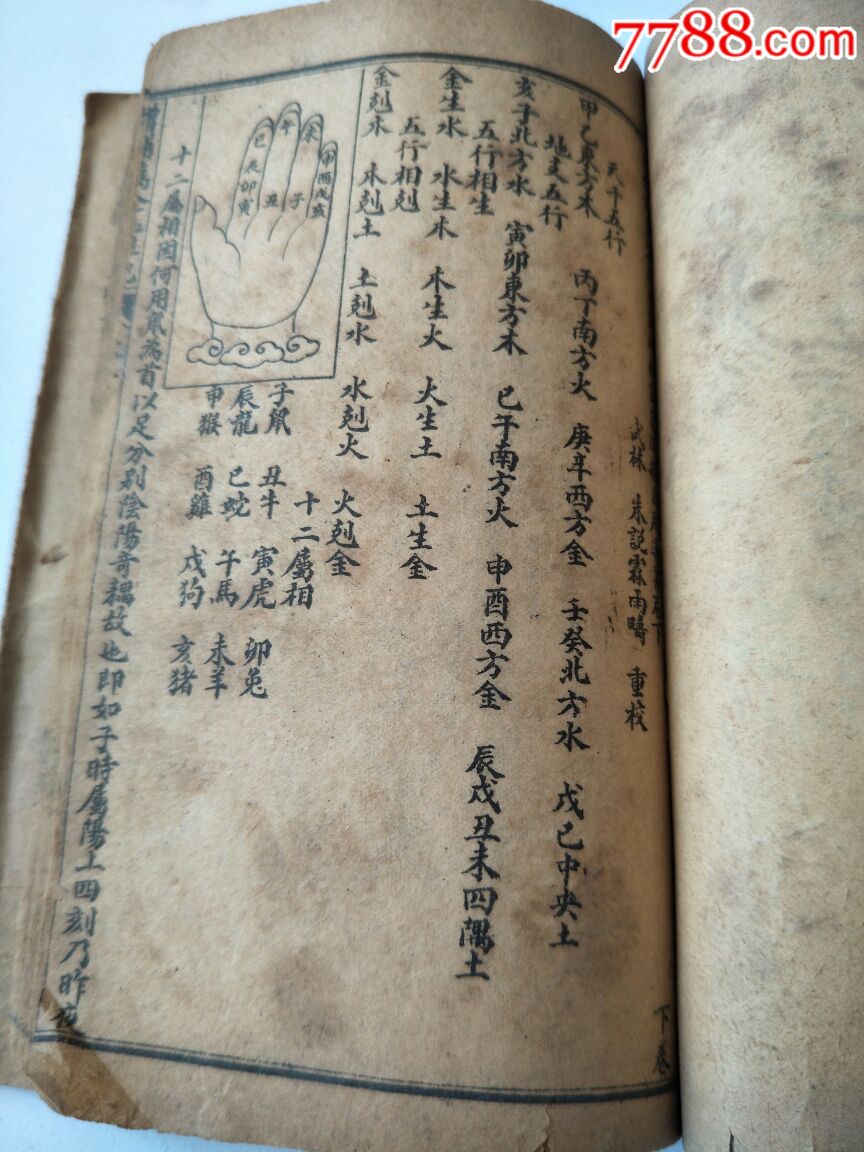 7788.com
下卷
武林 朱說霖雨疇 重校
天干五行
甲乙東方木 丙丁南方火 庚辛西方金 壬癸北方水 戊己中央土
地支五行
亥子北方水 寅卯東方木 巳午南方火 申酉西方金 辰戌丑未四隅土
五行相生
金生水 水生木 木生火 火生土 土生金
五行相剋
金剋木 木剋土 土剋水 水剋火 火剋金
十二屬相
子鼠 丑牛 寅虎 卯兔
辰龍 巳蛇 午馬 未羊
申猴 酉雞 戌狗 亥猪
巳 午 未 申酉戌亥
辰卯寅 丑 子
十二屬相因何用鼠為首以足分別陰陽奇耦故也即如子時屬陽上四刻乃昨夜